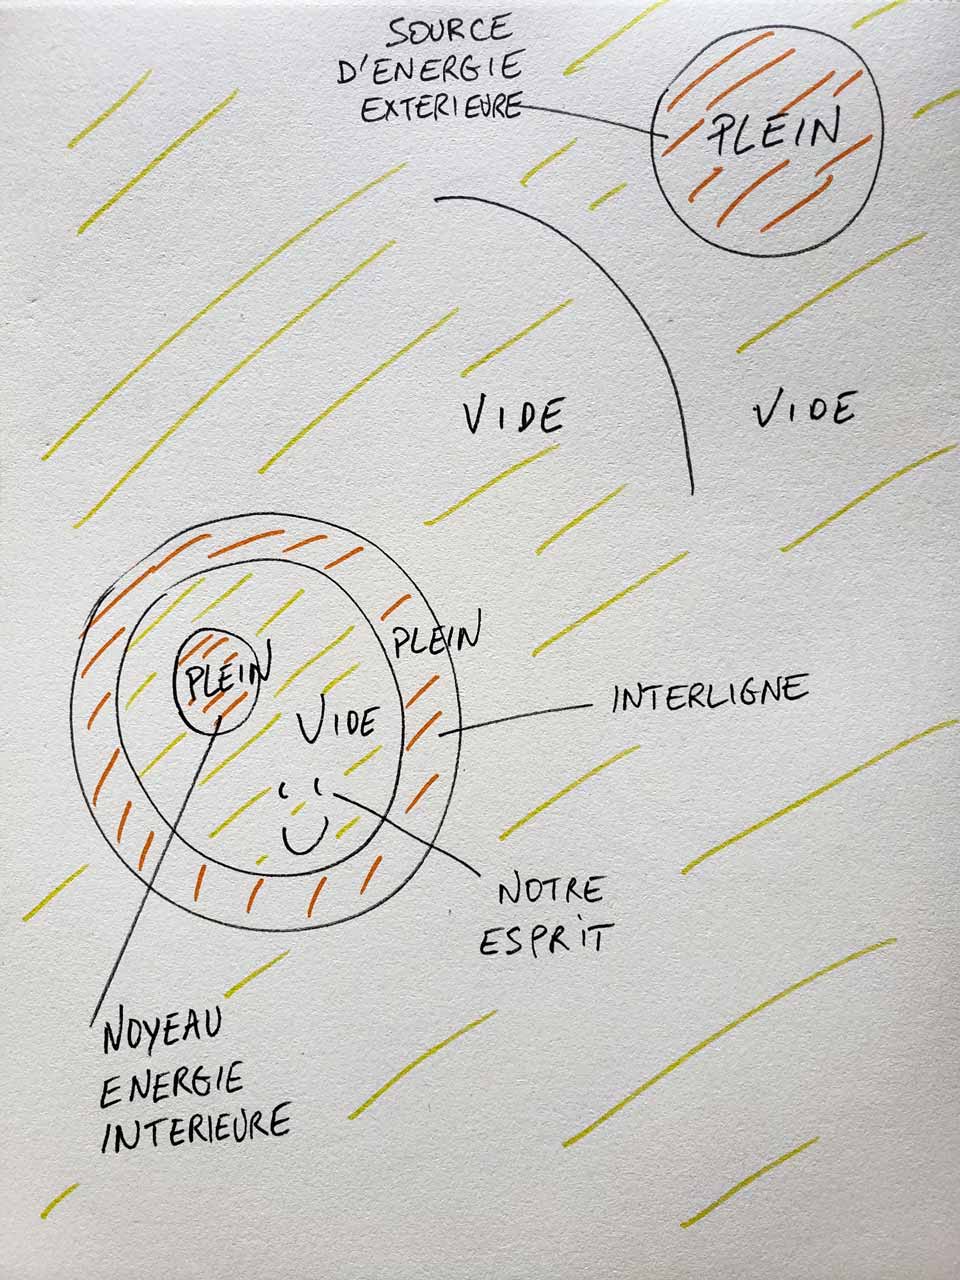 SOURCE
D'ENERGIE
EXTERIEURE
PLEIN
VIDE
VIDE
PLEIN
PLEIN
INTERLIGNE
VIDE
NOTRE
ESPRIT
NOYEAU
ENERGIE
INTERIEURE